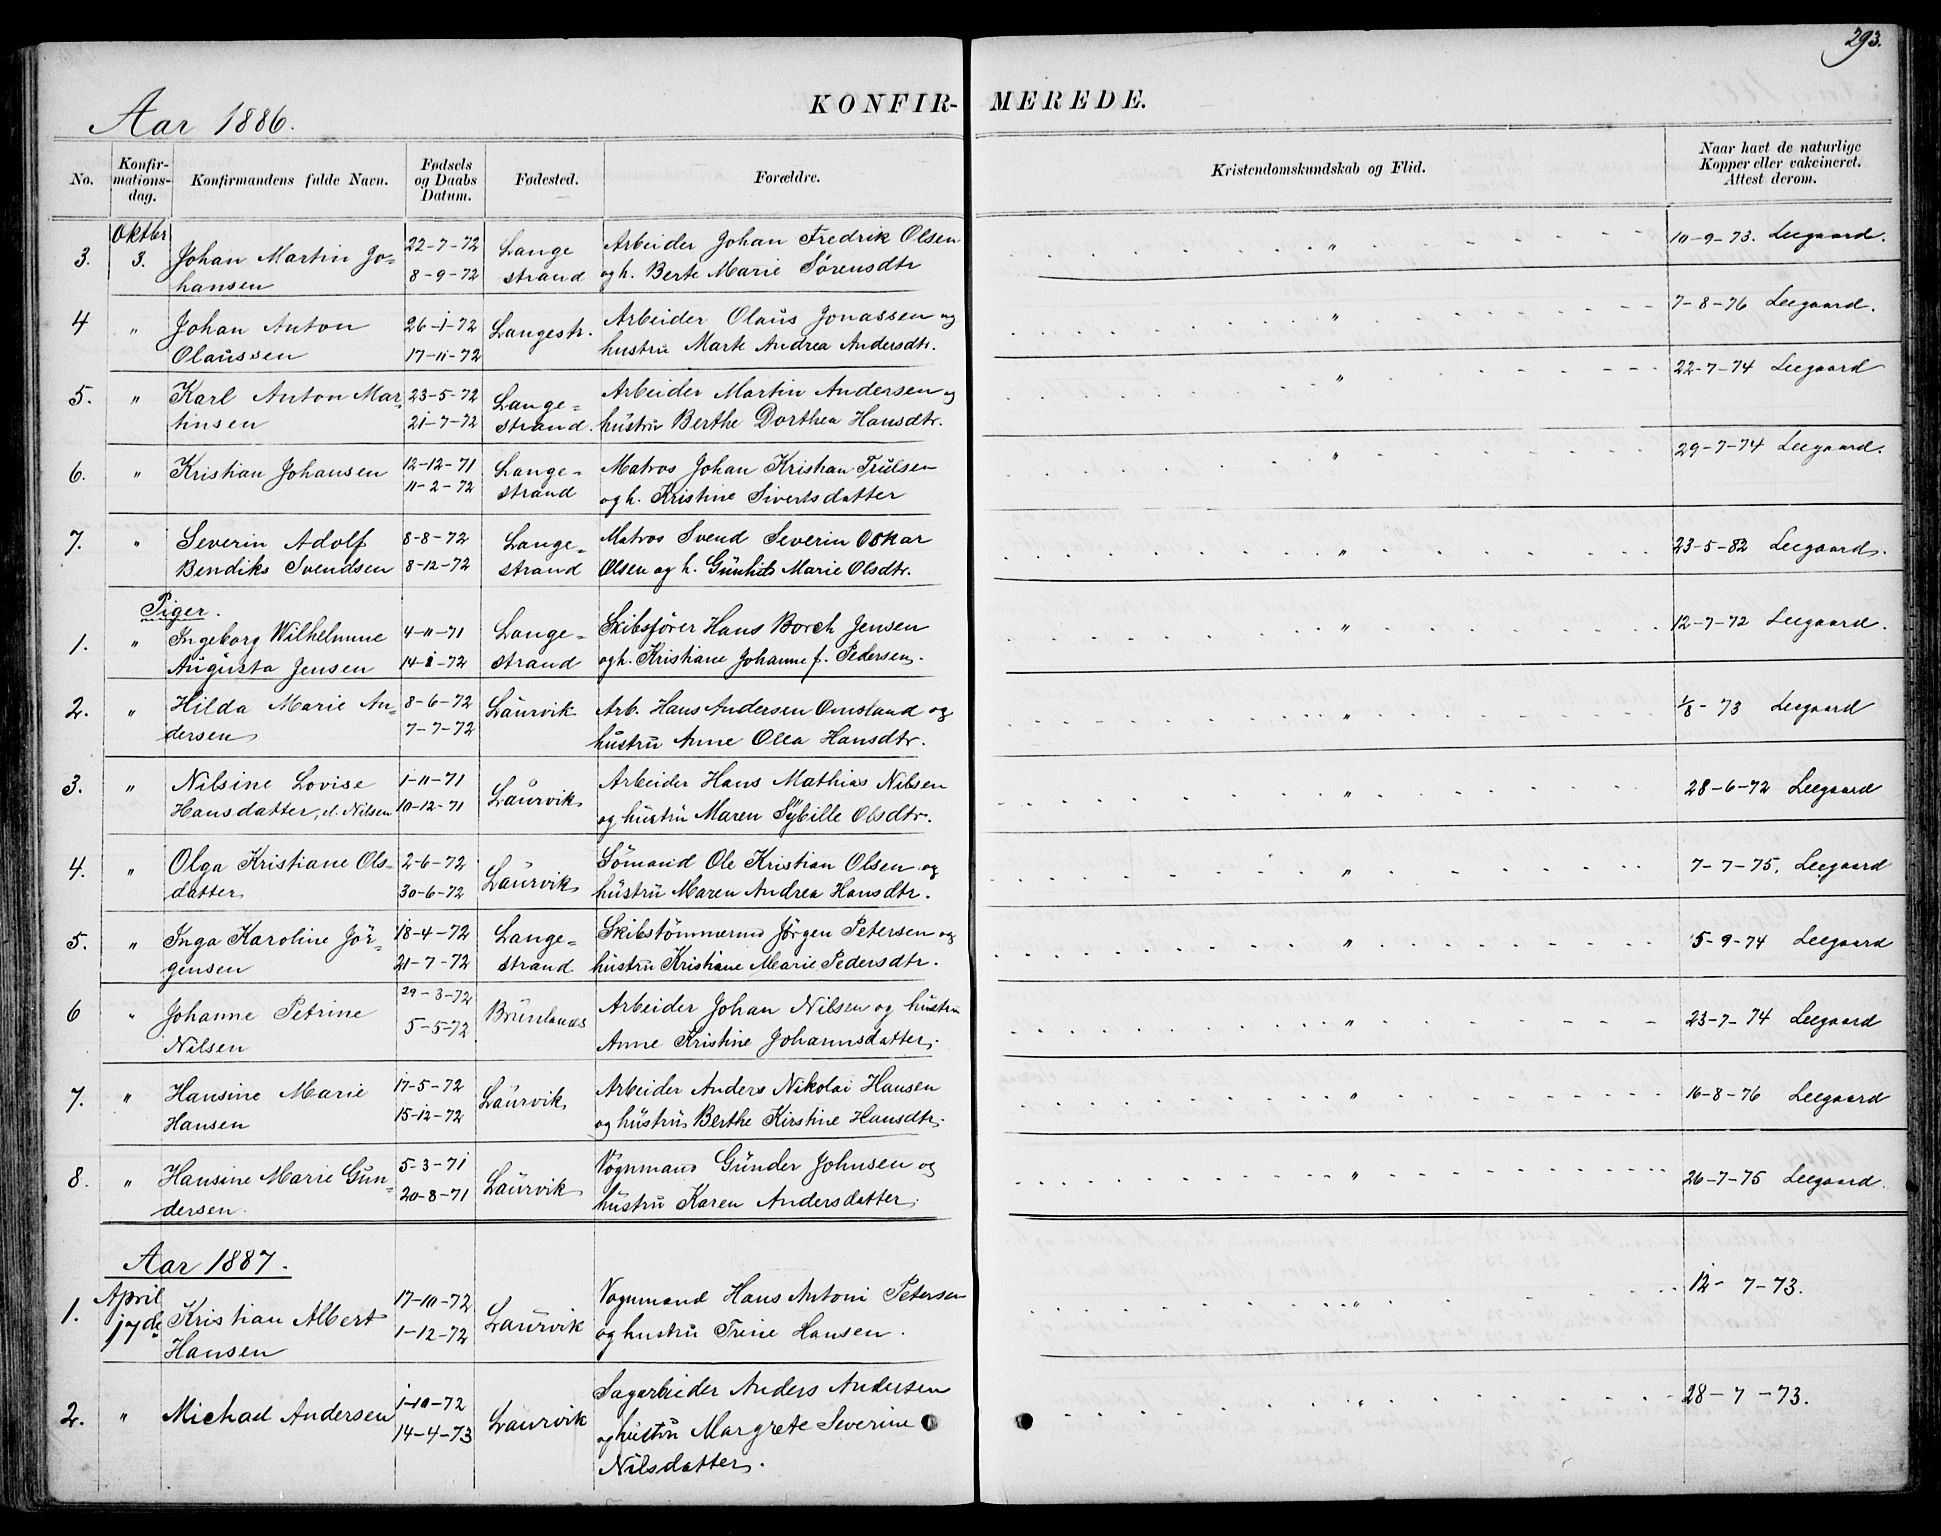 293.
Aar 1886.
KONFIR- MEREDE.
No.
Konfir-
mations-
dag.
Konfirmandens fulde Navn.
Fødsels
og Daabs
Datum.
Fødested.
Forældre.
Kristendomskundskab og Flid.
Naar havt de naturlige
Kopper eller vakcineret.
Attest derom.
Oktbr 22-7-72 Lange Arbeider Johan Fredrik Olsen
3. 3. Johan Martin Jo= 8-9-72 strand og h. Berte Marie Sørensdtr " 10-9-73. Leegaard.
hansen
4 " Johan Anton 26-1-72 Langestr. Arbeider Olaus Jonassen og " 7-8-76 Leegaard.
Olaussen 17-11-72 hustru Marte Andrea Andersdtr.
5. " Karl Anton Mar- 23-5-72 Lange= Arbeider Martin Andersen og " 22-7-74 Leegaard
tinsen 21-7-72 strand. hustru Berthe Dorthea Hansdtr.
6. " Kristian Johansen 12-12-71 Lange= Matros Johan Kristian Trulsen " 29-7-74 Leegaard.
11-2-72 strand og h. Kristine Sivertsdatter
7. " Severin Adolf 8-8-72 Lange= Matros Svend Severin Oskar " 23-5-82 Leegaard.
Bendiks Svendsen 8-12-72 strand Olsen og h. Gunhild Marie Olsdtr.
Piger.
1. " Ingeborg Wilhelmine 4-11-71 Lange= Skibsfører Hans Borch Jensen " 12-7-72 Leegaard.
Augusta Jensen 14-1-72 strand og h. Kristiane Johanne f. Pedersen.
2. " Hilda Marie An= 8-6-72 Laurvik Arb. Hans Andersen Omsland og " 1/8-73 Leegaard
dersen 7-7-72 hustru Anne Olea Hansdtr.
3. " Nilsine Lovise 1-11-71 Laurvik Arbeider Hans Mathias Nilsen " 28-6-72 Leegaard
Hansdatter, el. Nilsen 10-12-71 og hustru Maren Sybille Olsdtr.
4. " Olga Kristiane Ols- 2-6-72 Laurvik Sømand Ole Kristian Olsen og " 7-7-75. Leegaard
datter 30-6-72 hustru Maren Andrea Hansdtr.
5. " Inga Karoline Jör- 18-4-72 Lange= Skibstømmermd Jørgen Petersen og " 5-9-74 Leegaard
gensen 21-7-72 strand hustru Kristiane Marie Pedersdtr.
6 " Johanne Petrine 29-3-72 Brunlanæs Arbeider Johan Nilsen og hustru " 23-7-74 Leegaard
Nilsen 5-5-72 Anne Kristine Johannsdatter.
7. " Hansine Marie 17-5-72 Laurvik Arbeider Anders Nikolai Hansen " 16-8-76 Leegaard
Hansen 15-12-72 og hustru Berthe Kirstine Hansdtr.
8. " Hansine Marie Gun- 5-3-71 Laurvik Vognmand Gunder Johnsen og " 26-7-75 Leegaard.
dersen. 20-8-71 hustru Karen Andersdatter.
Aar 1887.
April 17-10-72 Vognmand Hans Antoni Petersen
1. 17de Kristian Albert 1-12-72 Laurvik og hustru Trine Hansen. " 12-7-73.
Hansen
2. " Michael Andersen 1-10-72 Laurvik Sagarbeider Anders Andersen " 28-7-73.
14-4-73 og hustru Margrete Severine
Nilsdatter.